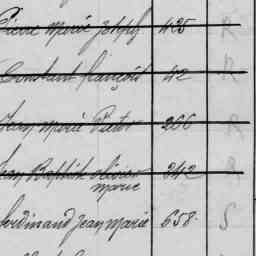 Pierre Marie Joseph 425 R
Constant François 42 R
Jean Marie Pierre 266 R
Jean Baptiste olivier 342 R
marie
ferdinand jean marie 658 S